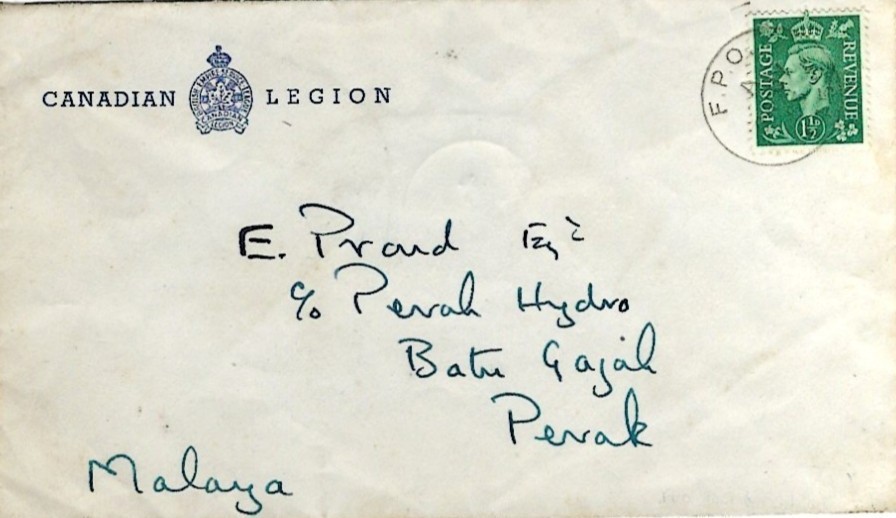 CANADIAN LEGION
CANADIAN LEGION
F.P.O.
POSTAGE REVENUE
1½D
E. Proud Esqr
c/o Perak Hydro
Batu Gajah
Perak
Malaya